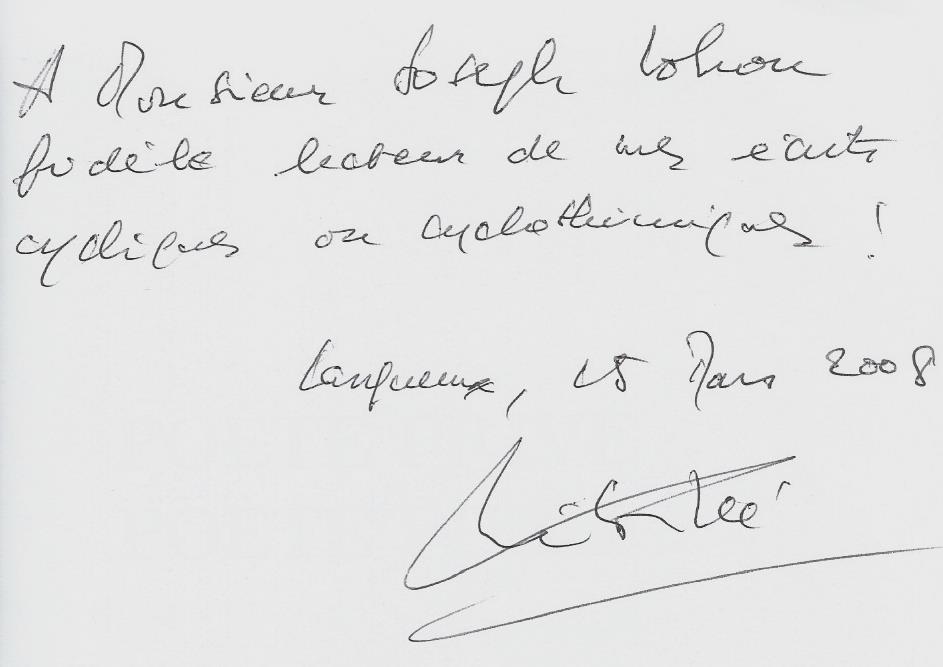 A Monsieur Joseph Lohou
fidèle lecteur de mes écrits
cycliques ou cyclothimiques !
Langueux, 15 Mars 2008